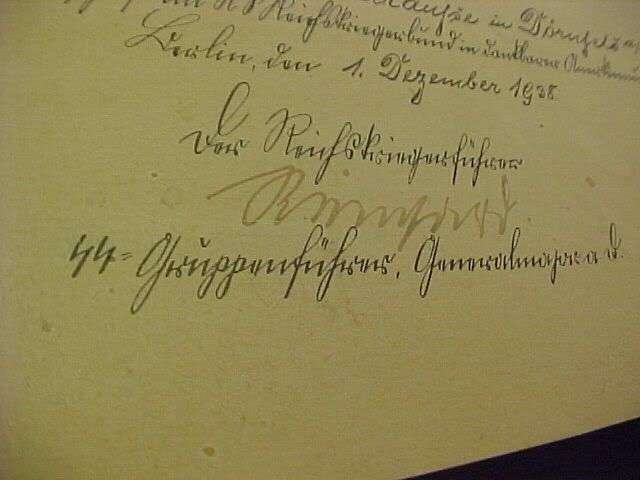 im NS Reichskriegerbund in dankbarer Anerkennung
Berlin, den 1. Dezember 1938
Der Reichskriegerführer
Reinhard
SS-Gruppenführer, Generalmajor a.d.